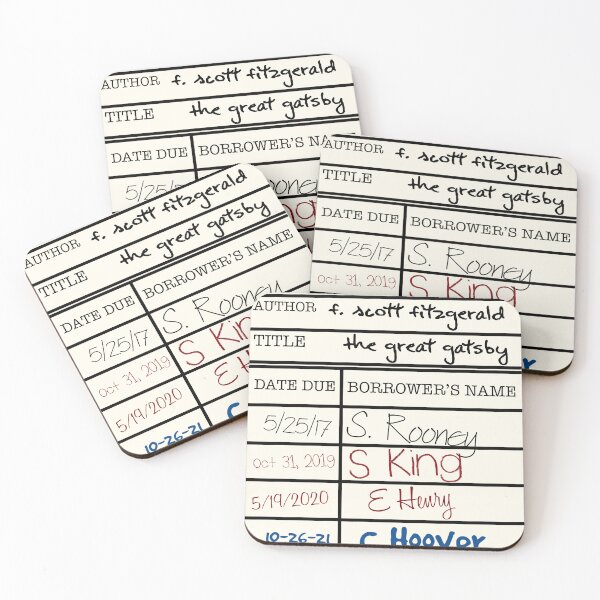 AUTHOR f. scott fitzgerald
TITLE the great gatsby
DATE DUE BORROWER'S NAME
5/25/
AUTHOR f. scott fitzgerald
TITLE the great gatsby
DATE DUE BORROWER'S NAME
5/25/17 S. Rooney
oct 31, 2019 S King
AUTHOR f. scott fitzgerald
TITLE the great gatsby
DATE DUE BORROWER'S NAME
5/25/17 S. Rooney
oct 31, 2019 S King
5/19/2020 E He
10-26-21 C
AUTHOR f. scott fitzgerald
TITLE the great gatsby
DATE DUE BORROWER'S NAME
5/25/17 S. Rooney
oct 31, 2019 S King
5/19/2020 E Henry
10-26-21 C Hoover